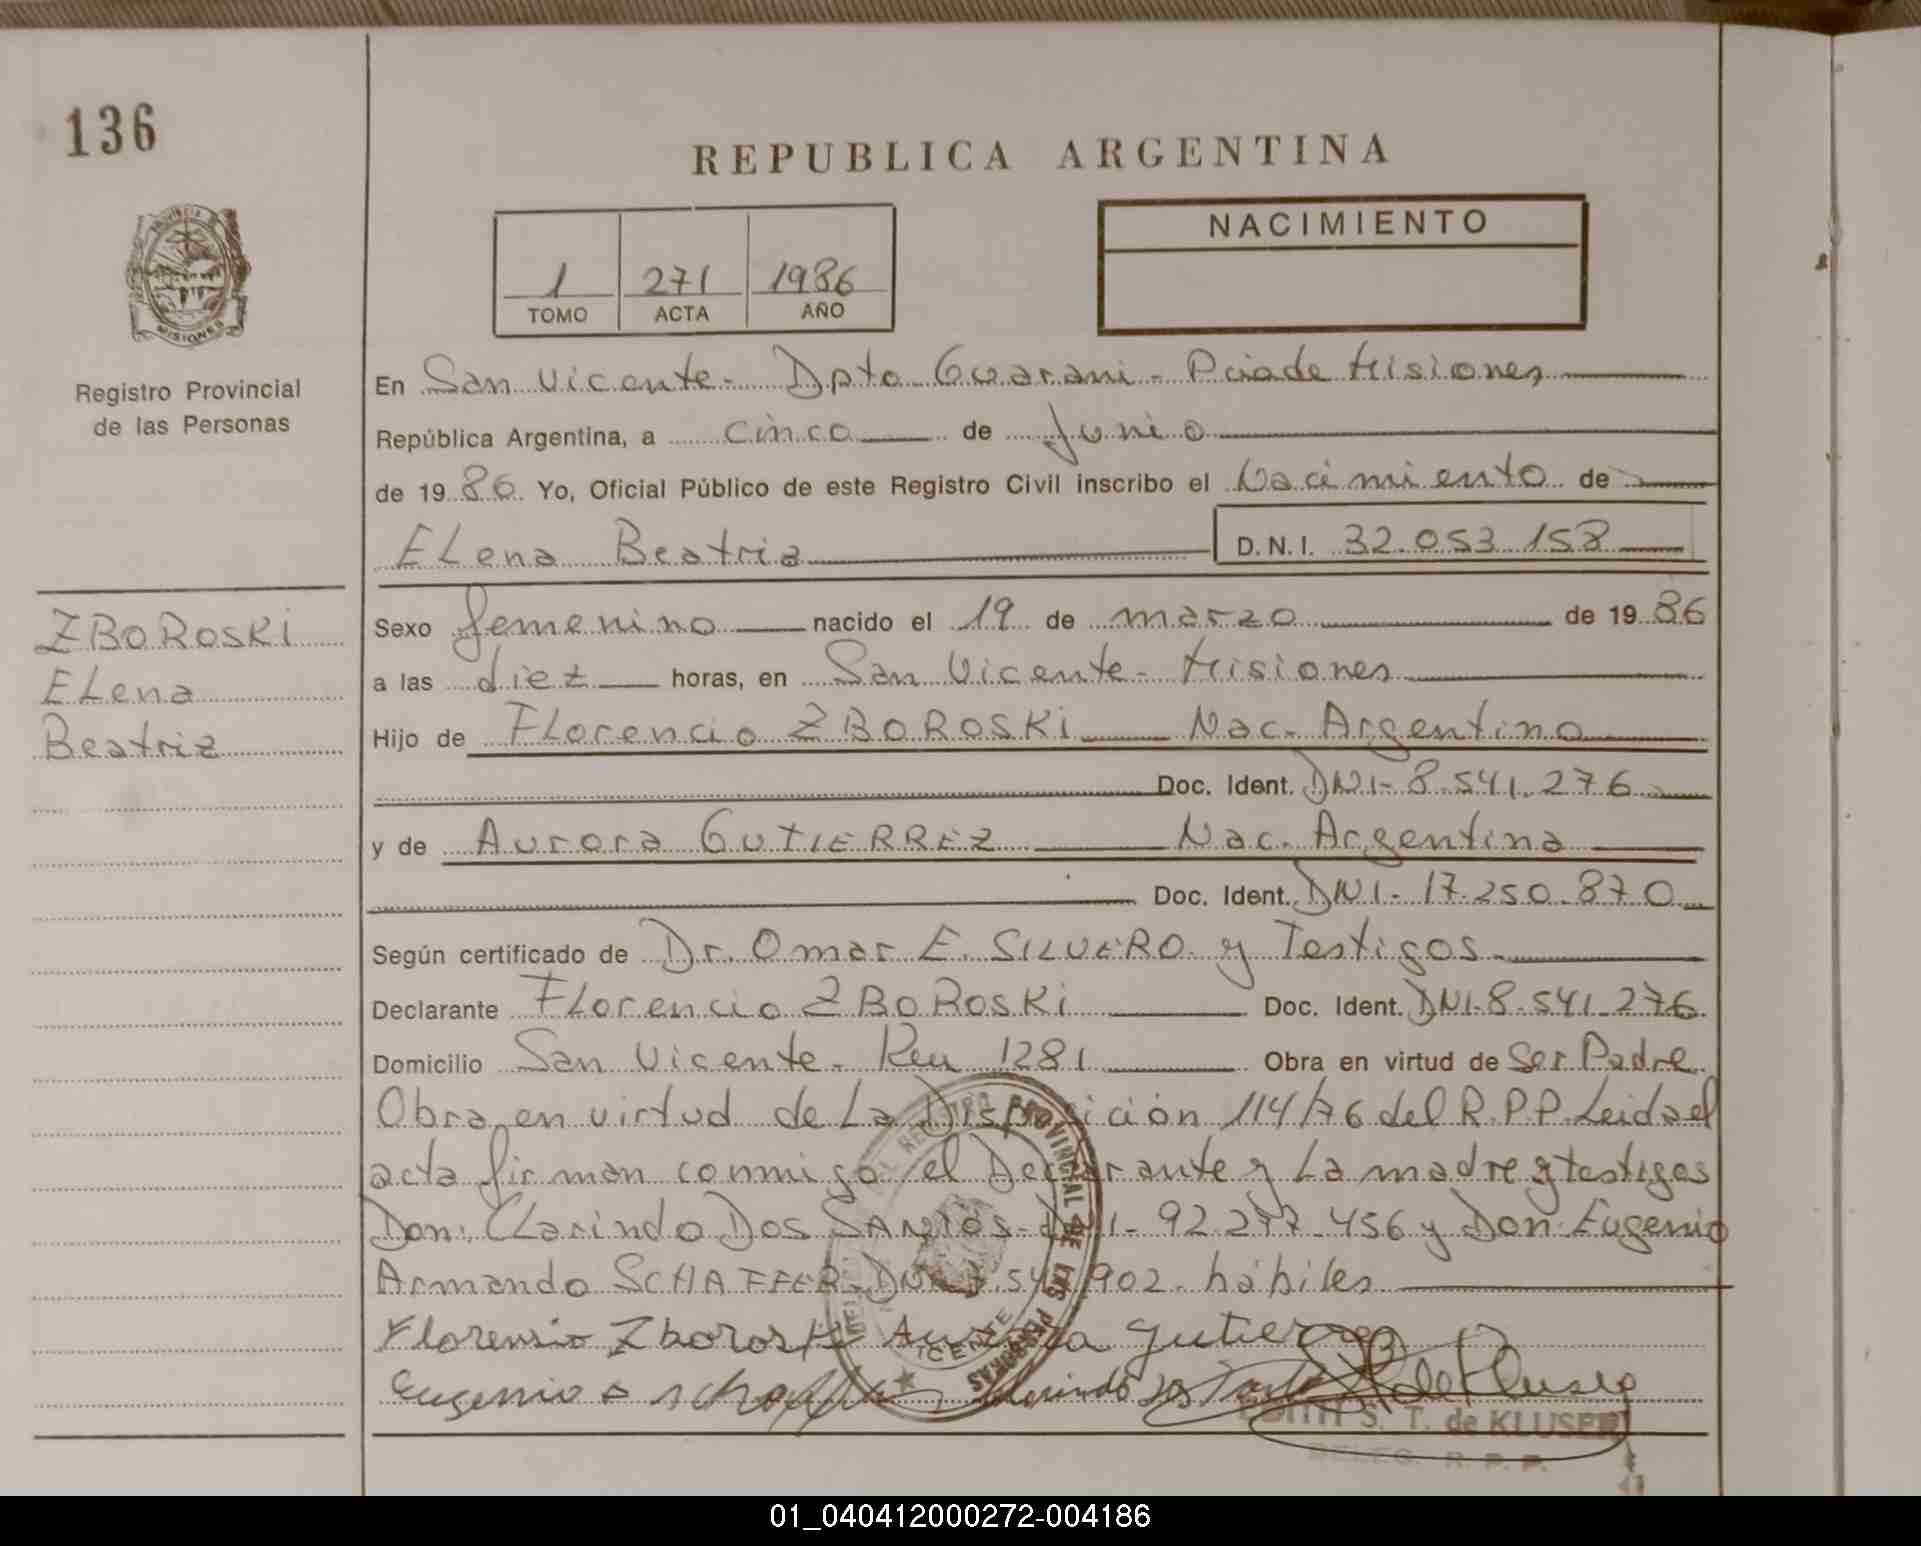 136
REPUBLICA ARGENTINA
PROVINCIA DE
MISIONES
Registro Provincial
de las Personas
1 271 1986
TOMO ACTA AÑO
NACIMIENTO
En San Vicente - Dpto Guarani - Pcia de Misiones
República Argentina, a cinco de Junio
de 1986 Yo, Oficial Público de este Registro Civil inscribo el Nacimiento de
ELena Beatriz D.N.I. 32.053.158
ZBOROSKI
ELena
Beatriz
Sexo femenino nacido el 19 de marzo de 1986
a las diez horas, en San Vicente - Misiones
Hijo de FLorencio ZBOROSKI Nac. Argentino
Doc. Ident. DNI-8.541.276
y de Aurora GUTIERREZ Nac. Argentina
Doc. Ident. DNI-17.250.870
Según certificado de Dr. Omar E. SILVERO y Testigos
Declarante FLorencio ZBOROSKI Doc. Ident. DNI-8.541.276
Domicilio San Vicente - Km 1281 Obra en virtud de Ser Padre
Obra en virtud de La Disposición 114/76 del R.P.P. Leida el
acta firman conmigo el Declarante y La madre y testigos
Don: CLarindo Dos SANTOS - DNI-92.277.456 y Don Eugenio
Armando SCHAFFER DNI 902 - hábiles
Florensio Zboroski Aurora gutierrez
Eugenio A schaffer Clarindo dos
EDITH S. T. de KLUSER
DELEG. R. P. P.
REGISTRO PROVINCIAL DE LAS PERSONAS
VICENTE
01_040412000272-004186